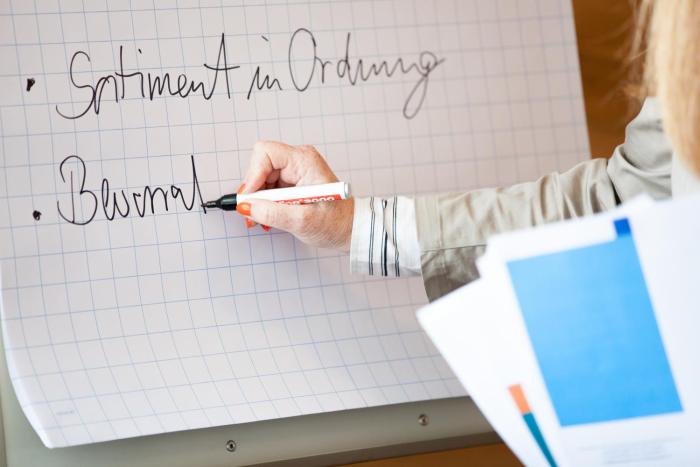 • Sortiment in Ordnung
• Bevorrat
3000